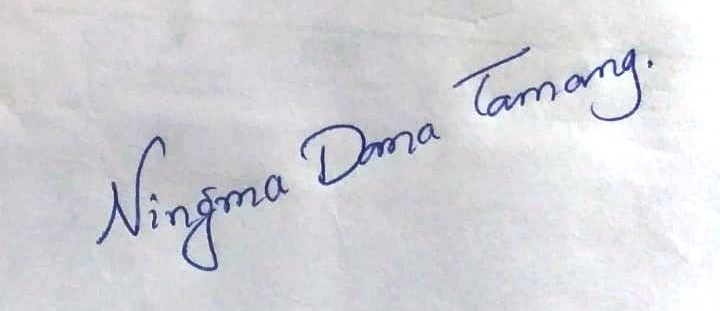 Ningma Doma Tamang.